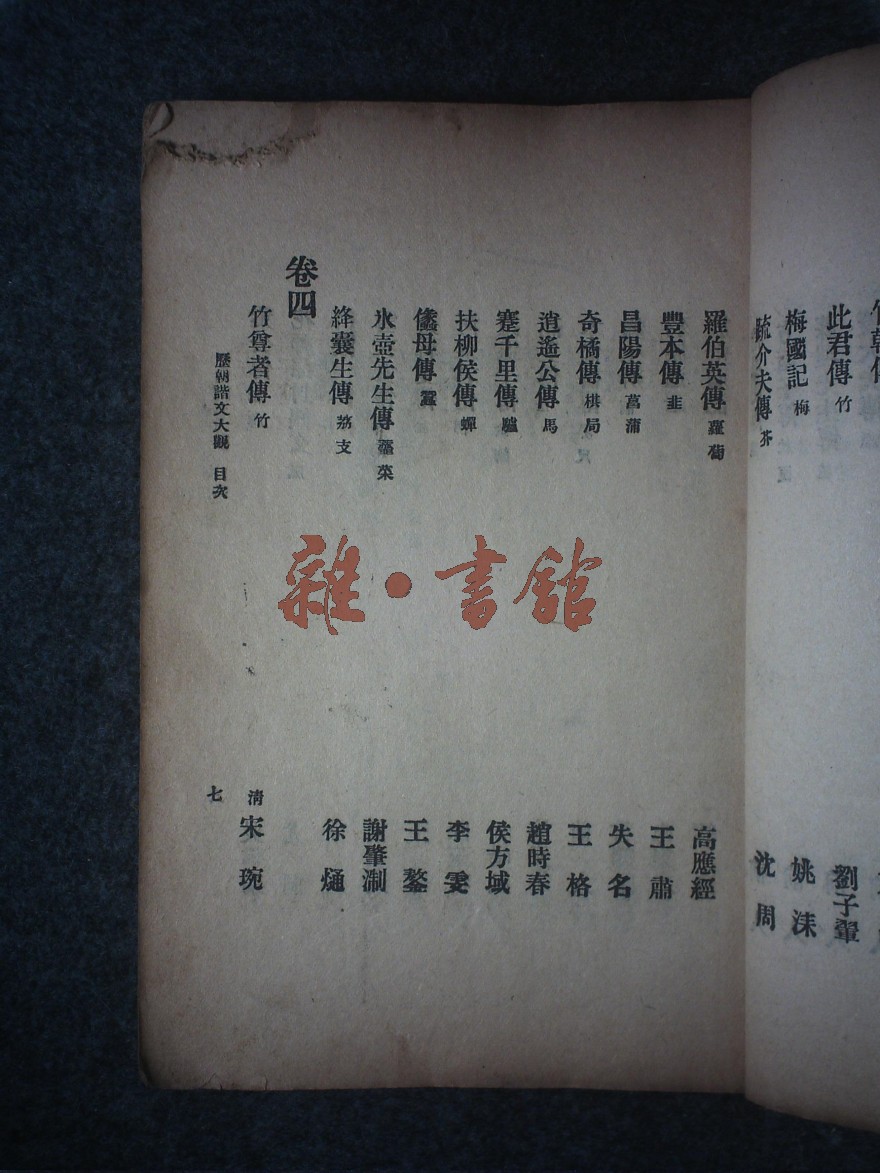 此君傳 竹 劉子翬
梅國記 梅 姚洡
疏介夫傳 芥 沈周
羅伯英傳 蘿蔔 高應經
豐本傳 韭 王肅
昌陽傳 菖蒲 失名
奇橘傳 棋局 王格
逍遙公傳 馬 趙時春
蹇千里傳 驢 侯方域
扶柳侯傳 蟬 李雯
儀母傳 蠶 王鏊
氷壺先生傳 虀菜 謝肇淛
絳囊生傳 荔支 徐𤊹
卷四
竹尊者傳 竹 清 宋琬
歷朝諧文大觀 目次 七
雜·書館